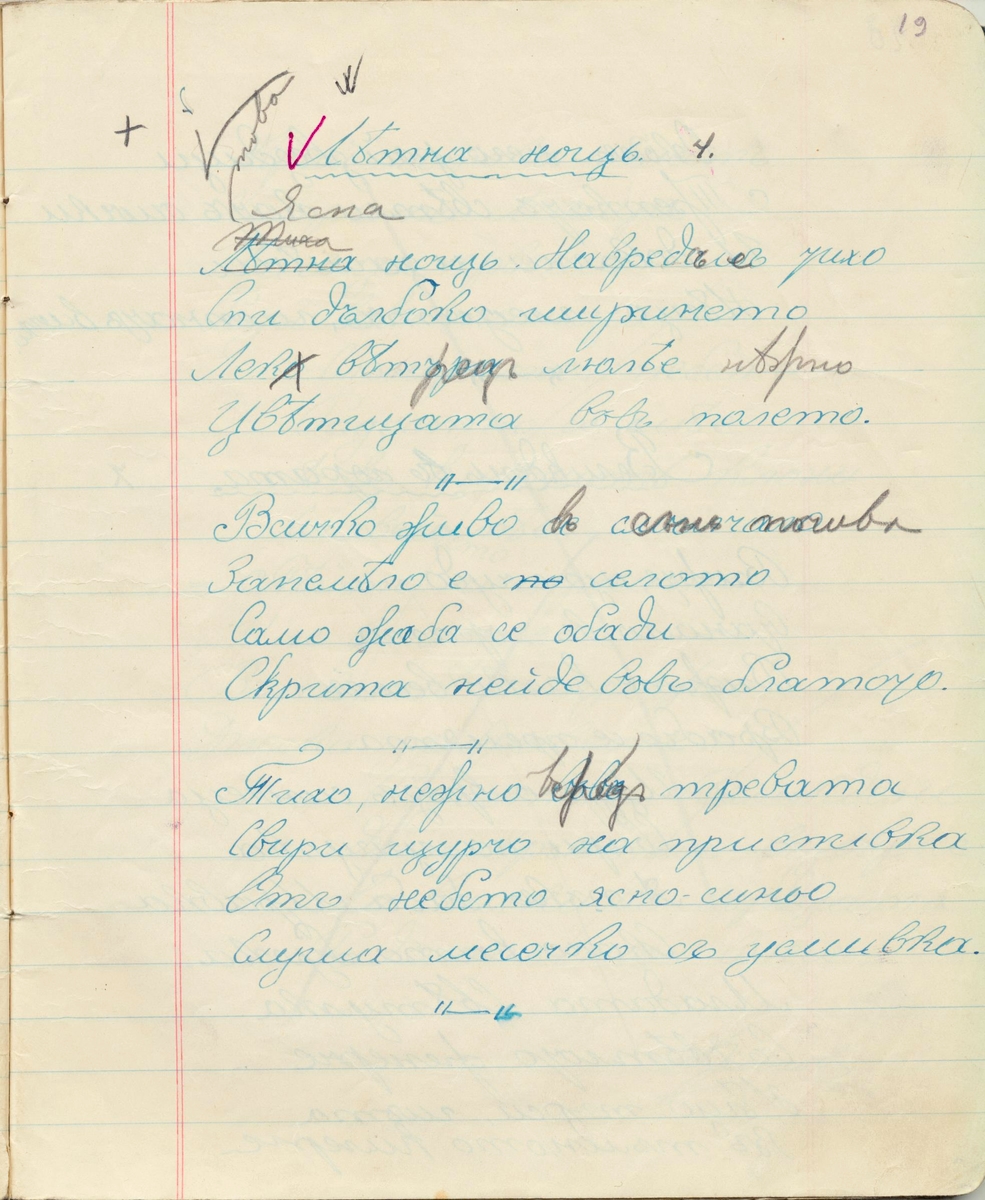 19
това
Лѣтна нощь. 4.
Ясна
Тиха
Лѣтна нощь. Навредъ е тихо
Спи дълбоко ширинето
Лекъ вѣтрецъ люлѣе нѣжно
Цвѣтицата въвъ полето.
Всичко живо в сънь почива
Занемѣло е селото
Само жаба се обади
Скрита нейде въвъ блатото.
Тихо, нежно всредъ тревата
Свири щурчо на приспивка
Отъ небето ясно-синьо
Слуша месечко съ усмивка.